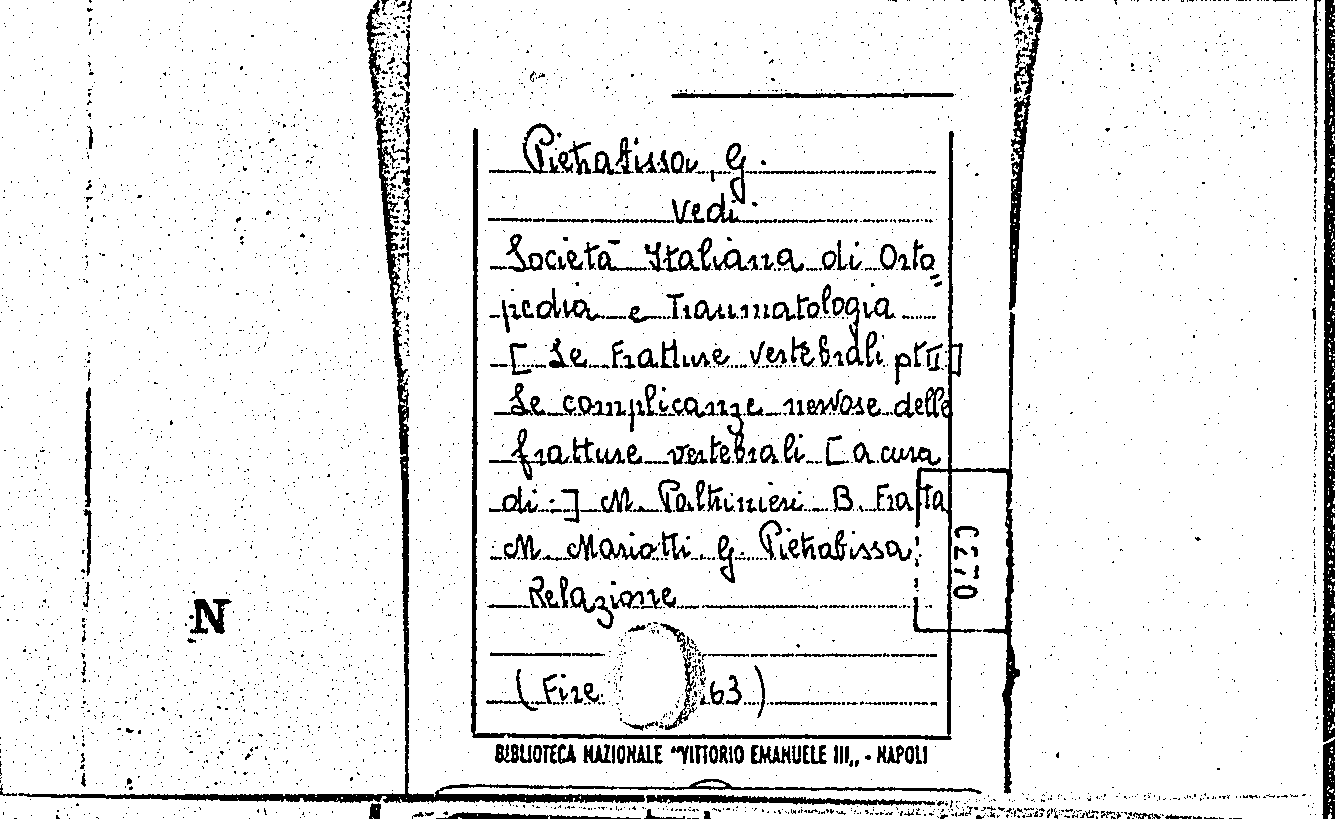 Pietrabissa, G.
Vedi
Società Italiana di Orto„
pedia e Traumatologia
[ Le Fratture vertebrali ptII]
Le complicanze nervose delle
fratture vertebrali [a cura
di:] M. Paltrinieri B. Fratta
M. Mariotti. G. Pietrabissa.
Relazione
(Fire 63)
BIBLIOTECA NAZIONALE "VITTORIO EMANUELE III„ - NAPOLI
N